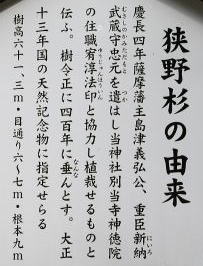 狭野杉の由来
慶長四年薩摩藩主島津義弘公、重臣新納
にいろ
武蔵守忠元を遣はし当神社別当寺神徳院
むさしのかみただもと つか
の住職宥淳法印と協力し植栽せるものと
ゆうじゅんほういん
伝ふ。樹令正に四百年に垂んとす。大正
なんな
十三年国の天然記念物に指定せらる
樹高六十一、三m・目通り六～七m・根本九m